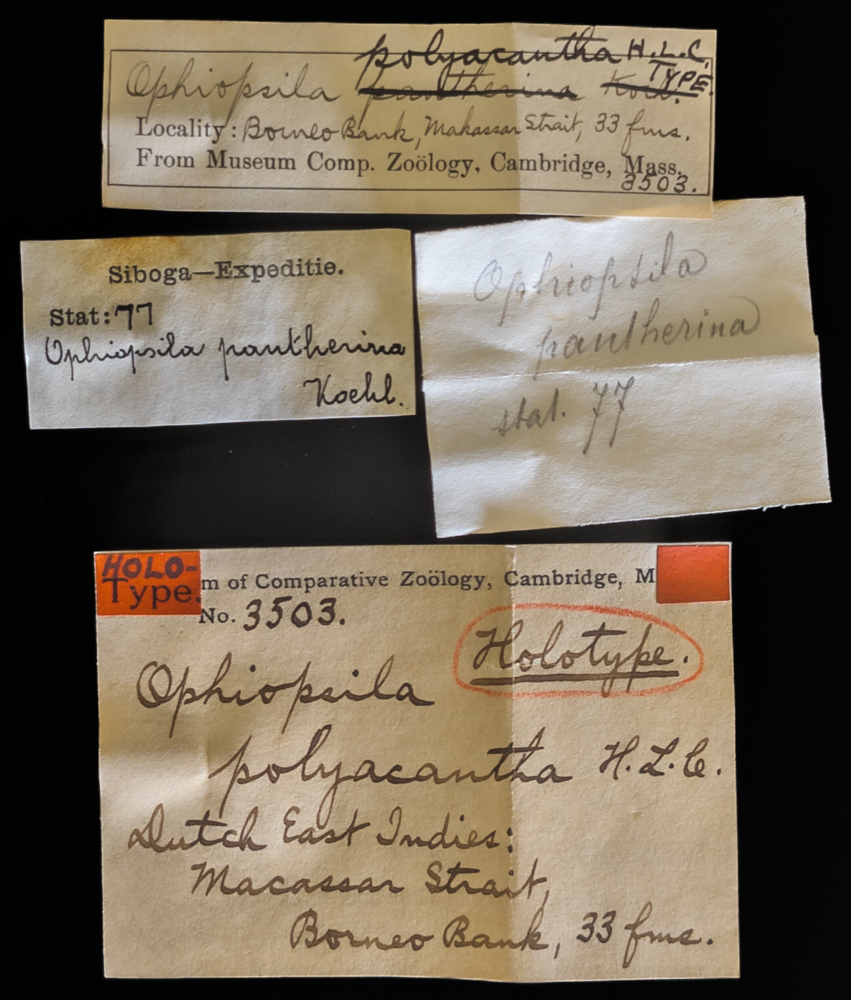 polyacantha H.L.C.
TYPE.
Ophiopsila pantherina Koehl.
Locality: Borneo Bank, Makassar Strait, 33 fms.
From Museum Comp. Zoölogy, Cambridge, Mass.
3503.
Siboga—Expeditie.
Stat: 77
Ophiopsila pantherina
Koehl.
Ophiopsila
pantherina
stat. 77
HOLO-
Type.
m of Comparative Zoölogy, Cambridge, M
No. 3503.
Holotype.
Ophiopsila
polyacantha H.L.C.
Dutch East Indies:
Macassar Strait,
Borneo Bank, 33 fms.